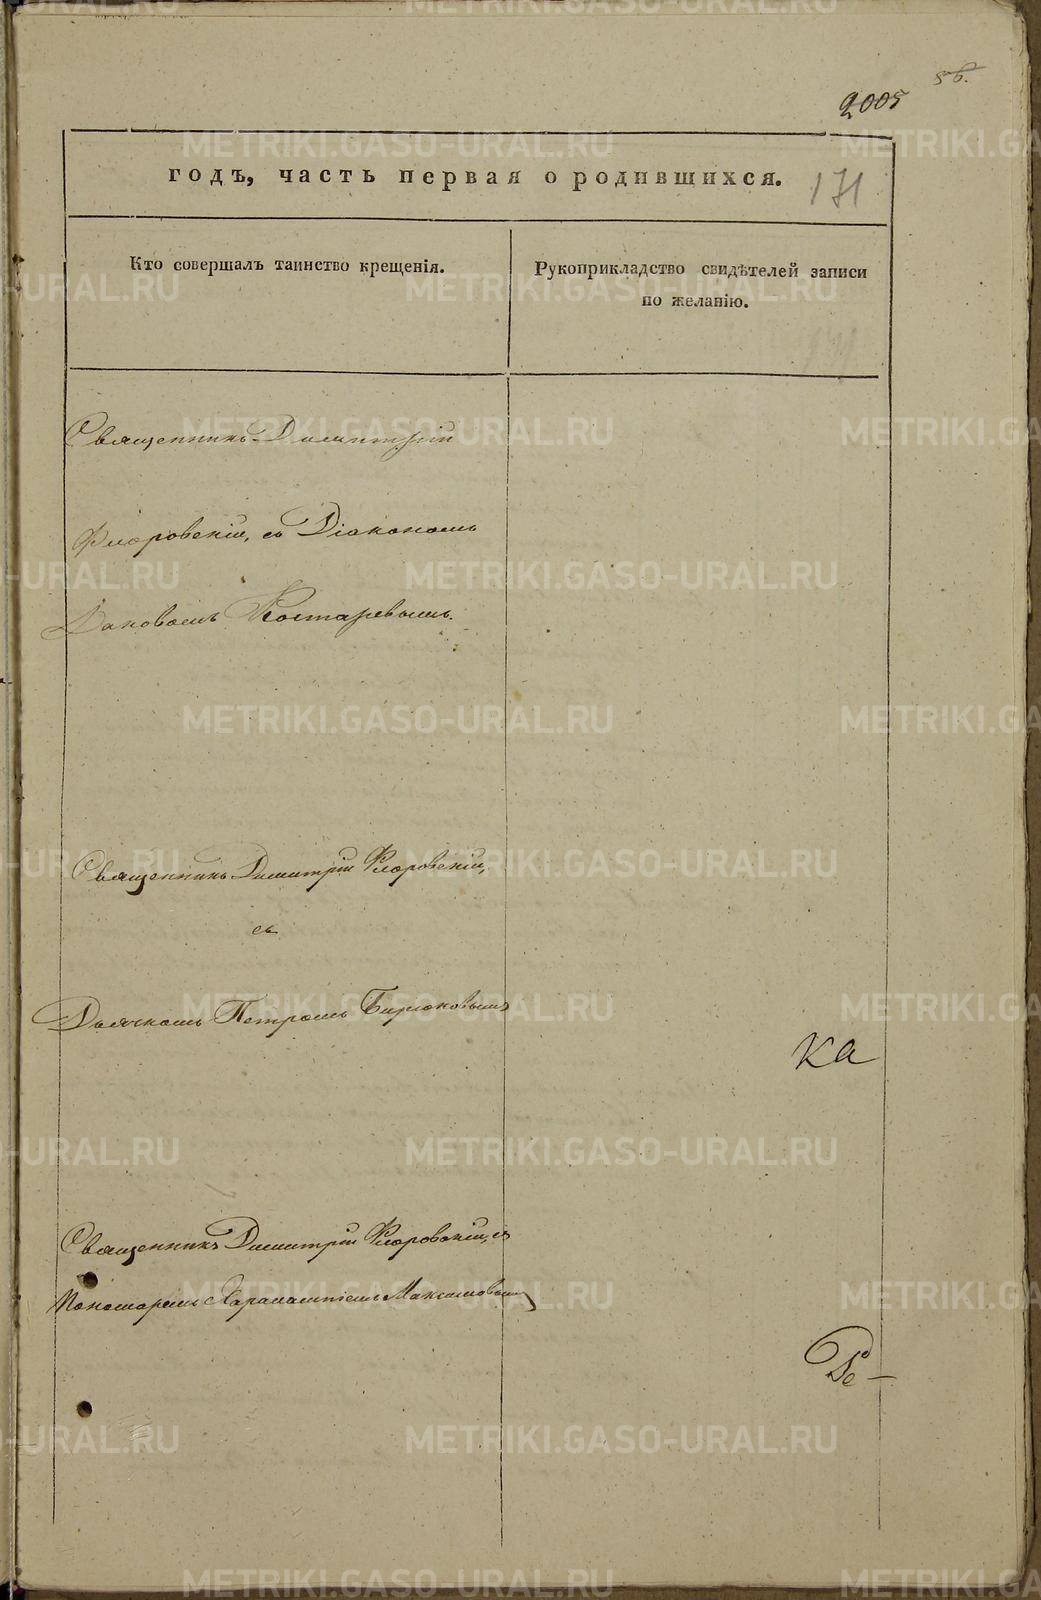 56.
2005
годъ, часть первая о родившихся.
171
Кто совершалъ таинство крещенія.
Рукоприкладство свидѣтелей записи
по желанію.
Священникъ Димитрій
Флоровскій, съ Діакономъ
Іаковомъ Костаревымъ.
Священникъ Димитрій Флоровскій,
съ
Дьячкомъ Петромъ Бирюковымъ
ка
Священникъ Димитрій Флоровскій, съ
Пономаремъ Харалампіемъ Максимовымъ
Ре-
METRIKI.GASO-URAL.RU